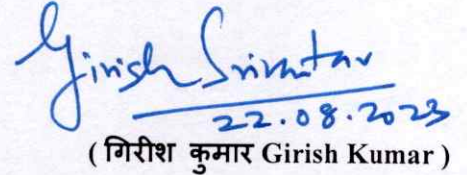 Girish Srivastav
22.08.2023
( गिरीश कुमार Girish Kumar )